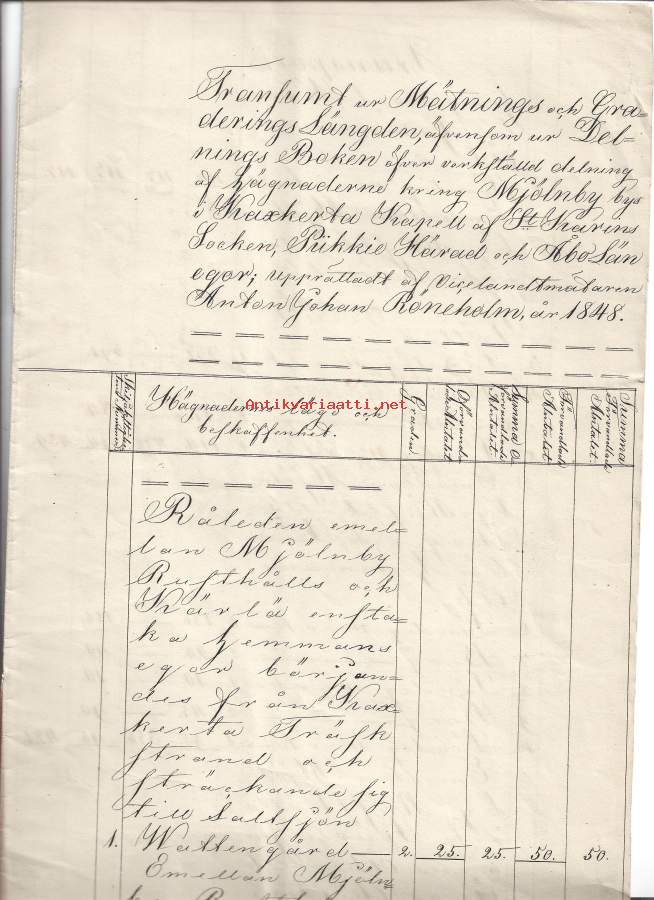 Transsumt ur Mätnings och Gra=
derings Längden, äfvensom ur Del=
nings Boken öfver verkställd delning
af hägnaderne kring Mjölnby bys
i Kaxkerta Kapell af S:t Karins
Socken, Pikkie Härad och Åbo Län
egor; upprättadt af Vicelandtmätaren
Anton Johan Roneholm, år 1848.
Hägnadernes läge och
beskaffenhet.
Graden.
Oförvandlade
Alntalet.
Summa o
förvandlade
Alntalet.
Förvandlade
Alntalet.
Summa
Förvandlade
Alntalet.
Antikvariaatti.net
Råleden emel=
lan Mjölnby
Rusthålls och
Kärlä ensta=
ka hemmans
egor början=
des från Kax=
kerta Träsk
strand och
sträckande sig
till Saltsjön
1. Wattengård 2. 25. 25. 50. 50.
Emellan Mjöln